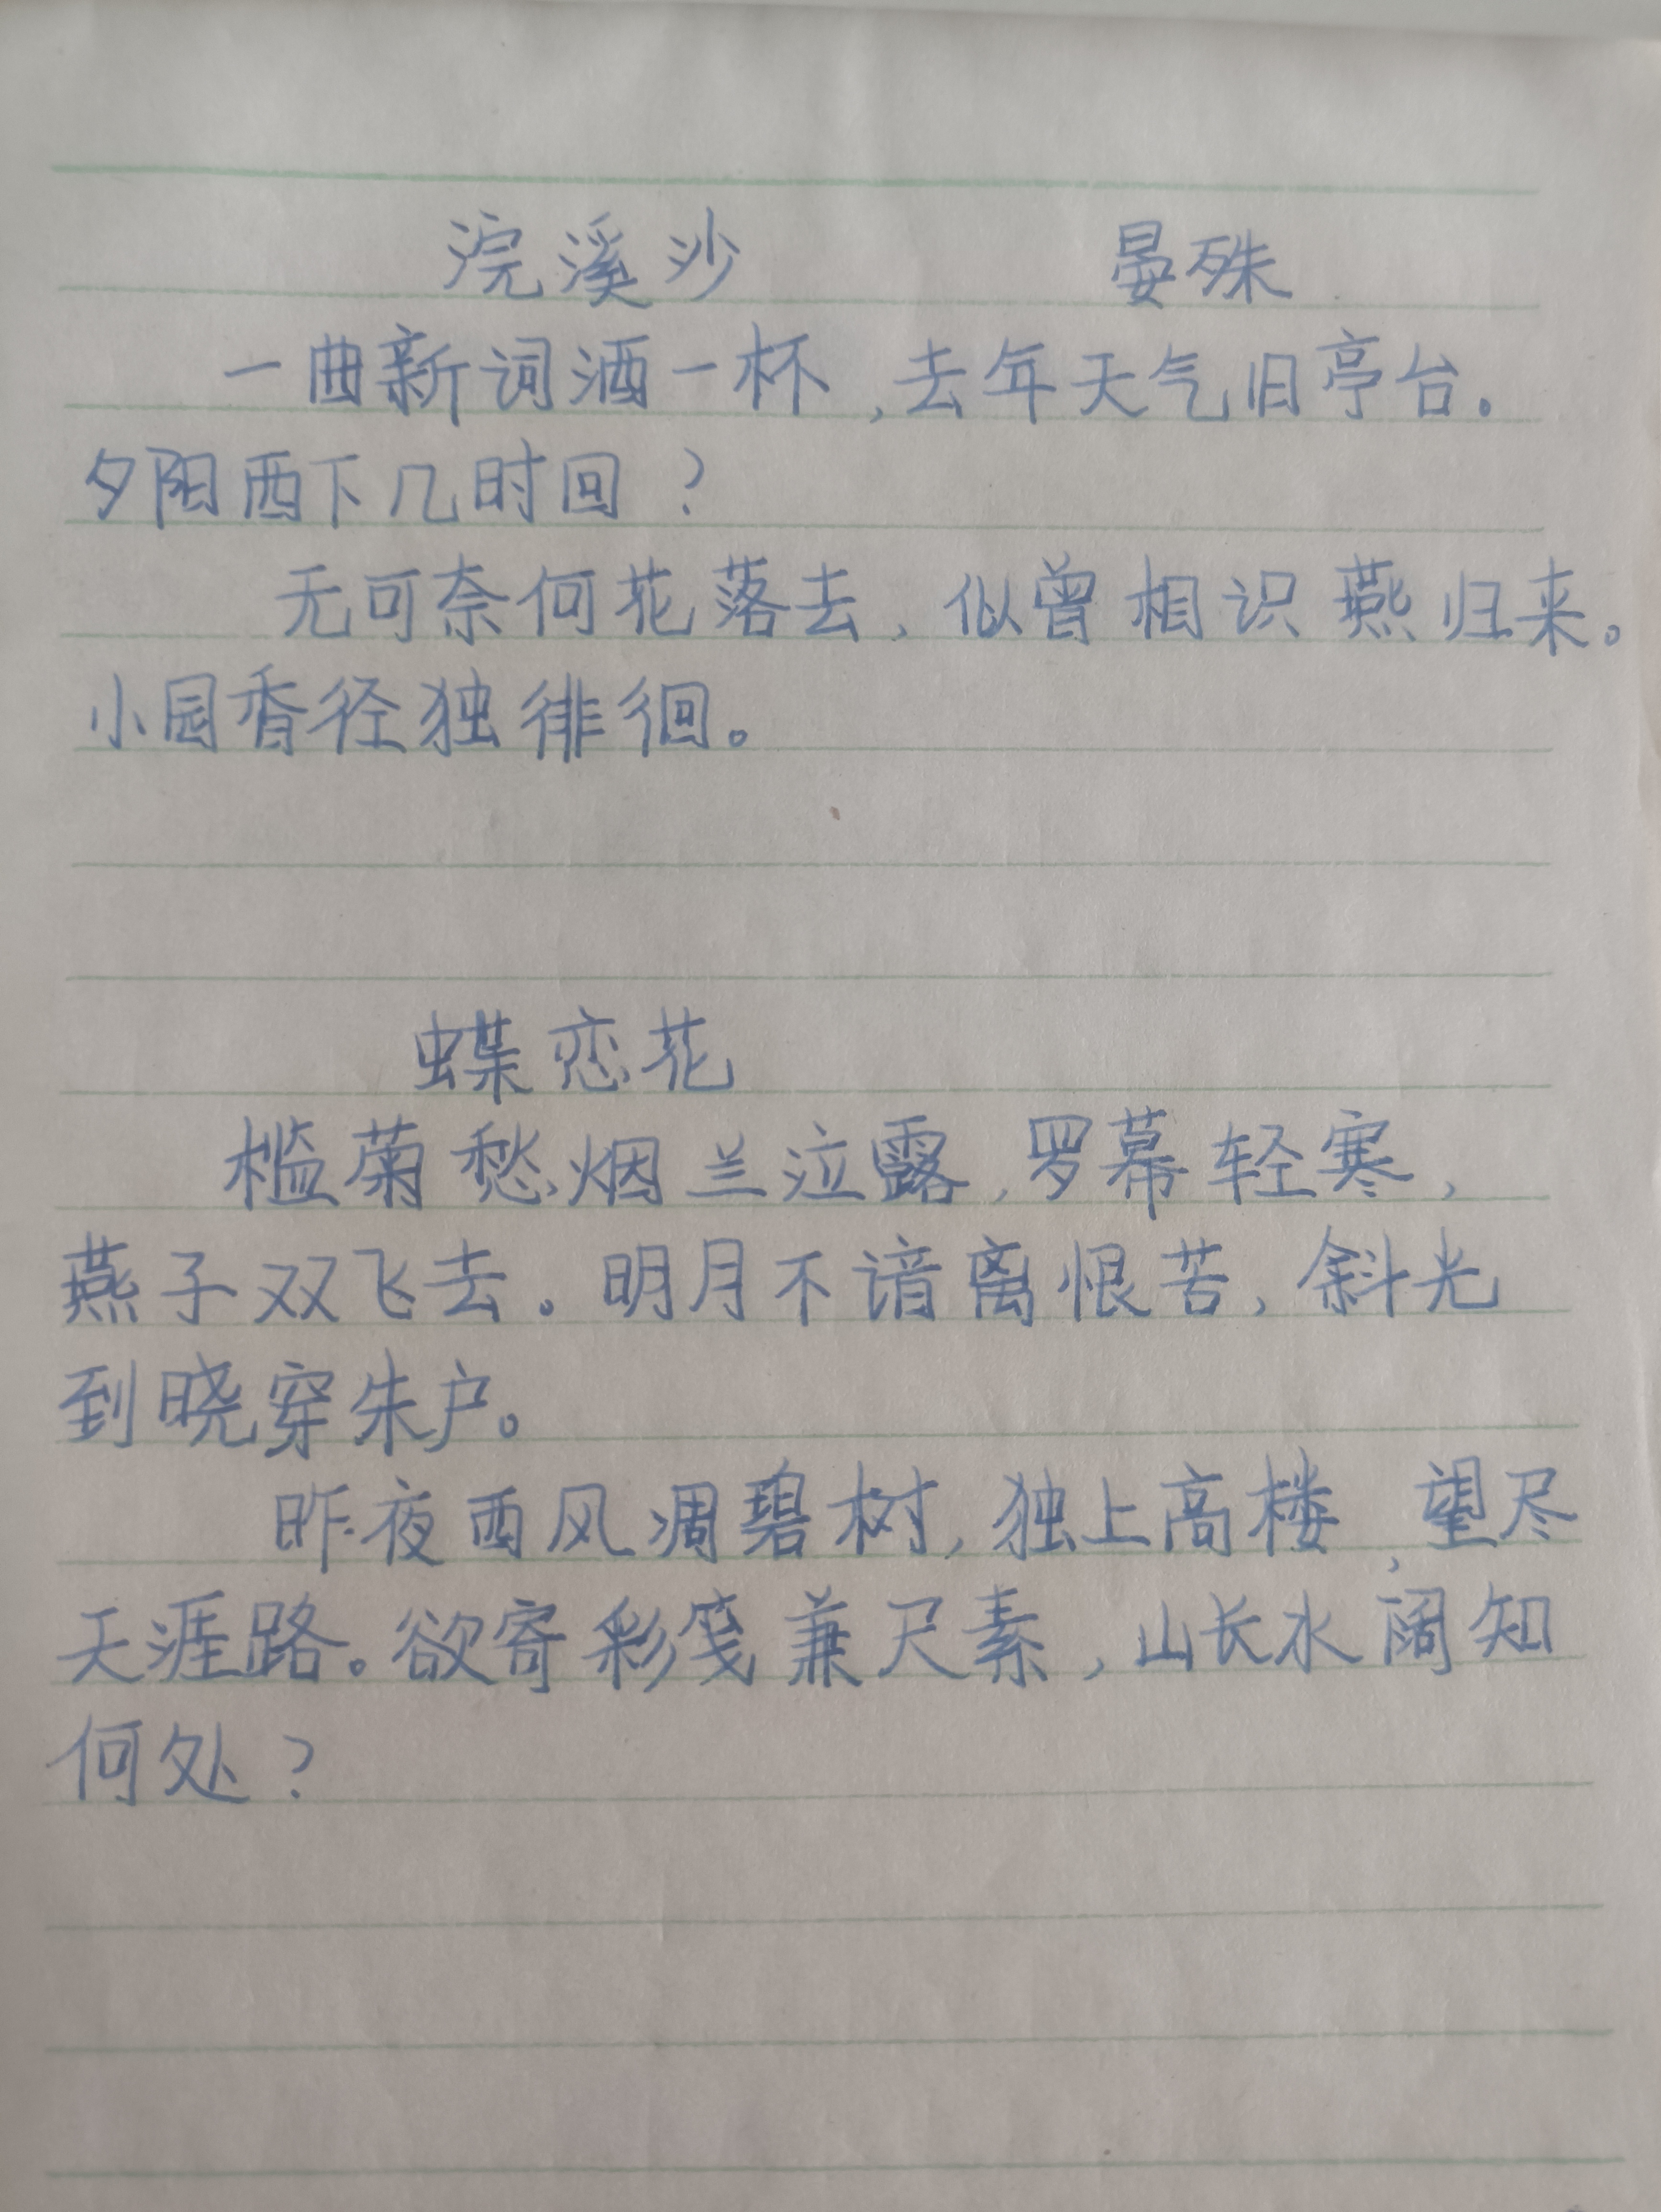 浣溪沙 晏殊
一曲新词酒一杯,去年天气旧亭台。
夕阳西下几时回?
无可奈何花落去,似曾相识燕归来。
小园香径独徘徊。
蝶恋花
槛菊愁烟兰泣露,罗幕轻寒,
燕子双飞去。明月不谙离恨苦,斜光
到晓穿朱户。
昨夜西风凋碧树,独上高楼,望尽
天涯路。欲寄彩笺兼尺素,山长水阔知
何处?